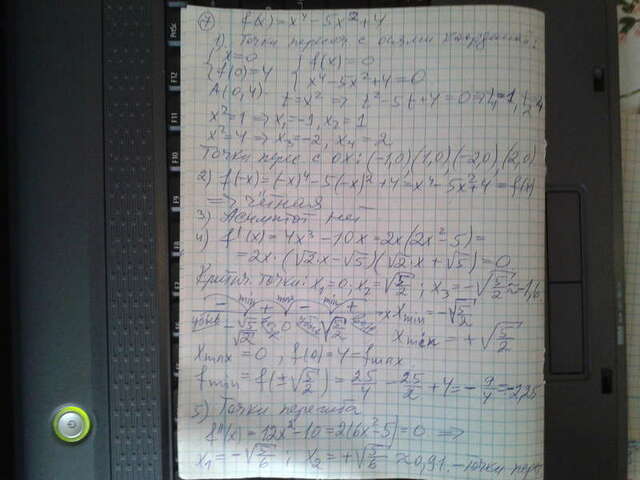 7 f(x)=x⁴-5x²+4
1) Точки пересеч с осями координат:
{x=0 {f(x)=0
{f(0)=4 {x⁴-5x²+4=0
A(0,4) t=x² => t²-5t+4=0 => t₁=1, t₂=4
x²=1 => x₁=-1, x₂=1
x²=4 => x₃=-2, x₄=2
Точки перес с ох: (-1,0)(1,0)(-2,0)(2,0)
2) f(-x)=(-x)⁴-5(-x)²+4=x⁴-5x²+4=f(x)
=> чётная
3) Асимптот нет
4) f'(x)=4x³-10x=2x(2x²-5)=
=2x·(√2x-√5)(√2x+√5)=0
Критич. точки: x₁=0; x₂=√5/2; x₃=-√5/2≈-1,6
- min + max - min +
убыв -√5/2 0 √5/2 x x min=-√5/2
x min=+√5/2
x max=0, f(0)=4=f max
f min=f(±√5/2)=25/4-25/2+4=-9/4=-2,25
5) Точки перегиба
f''(x)=12x²-10=2(6x²-5)=0 =>
x₁=-√5/6; x₂=+√5/6≈0,91 - точки пер
F12
F11
F10
F9
F8
F7